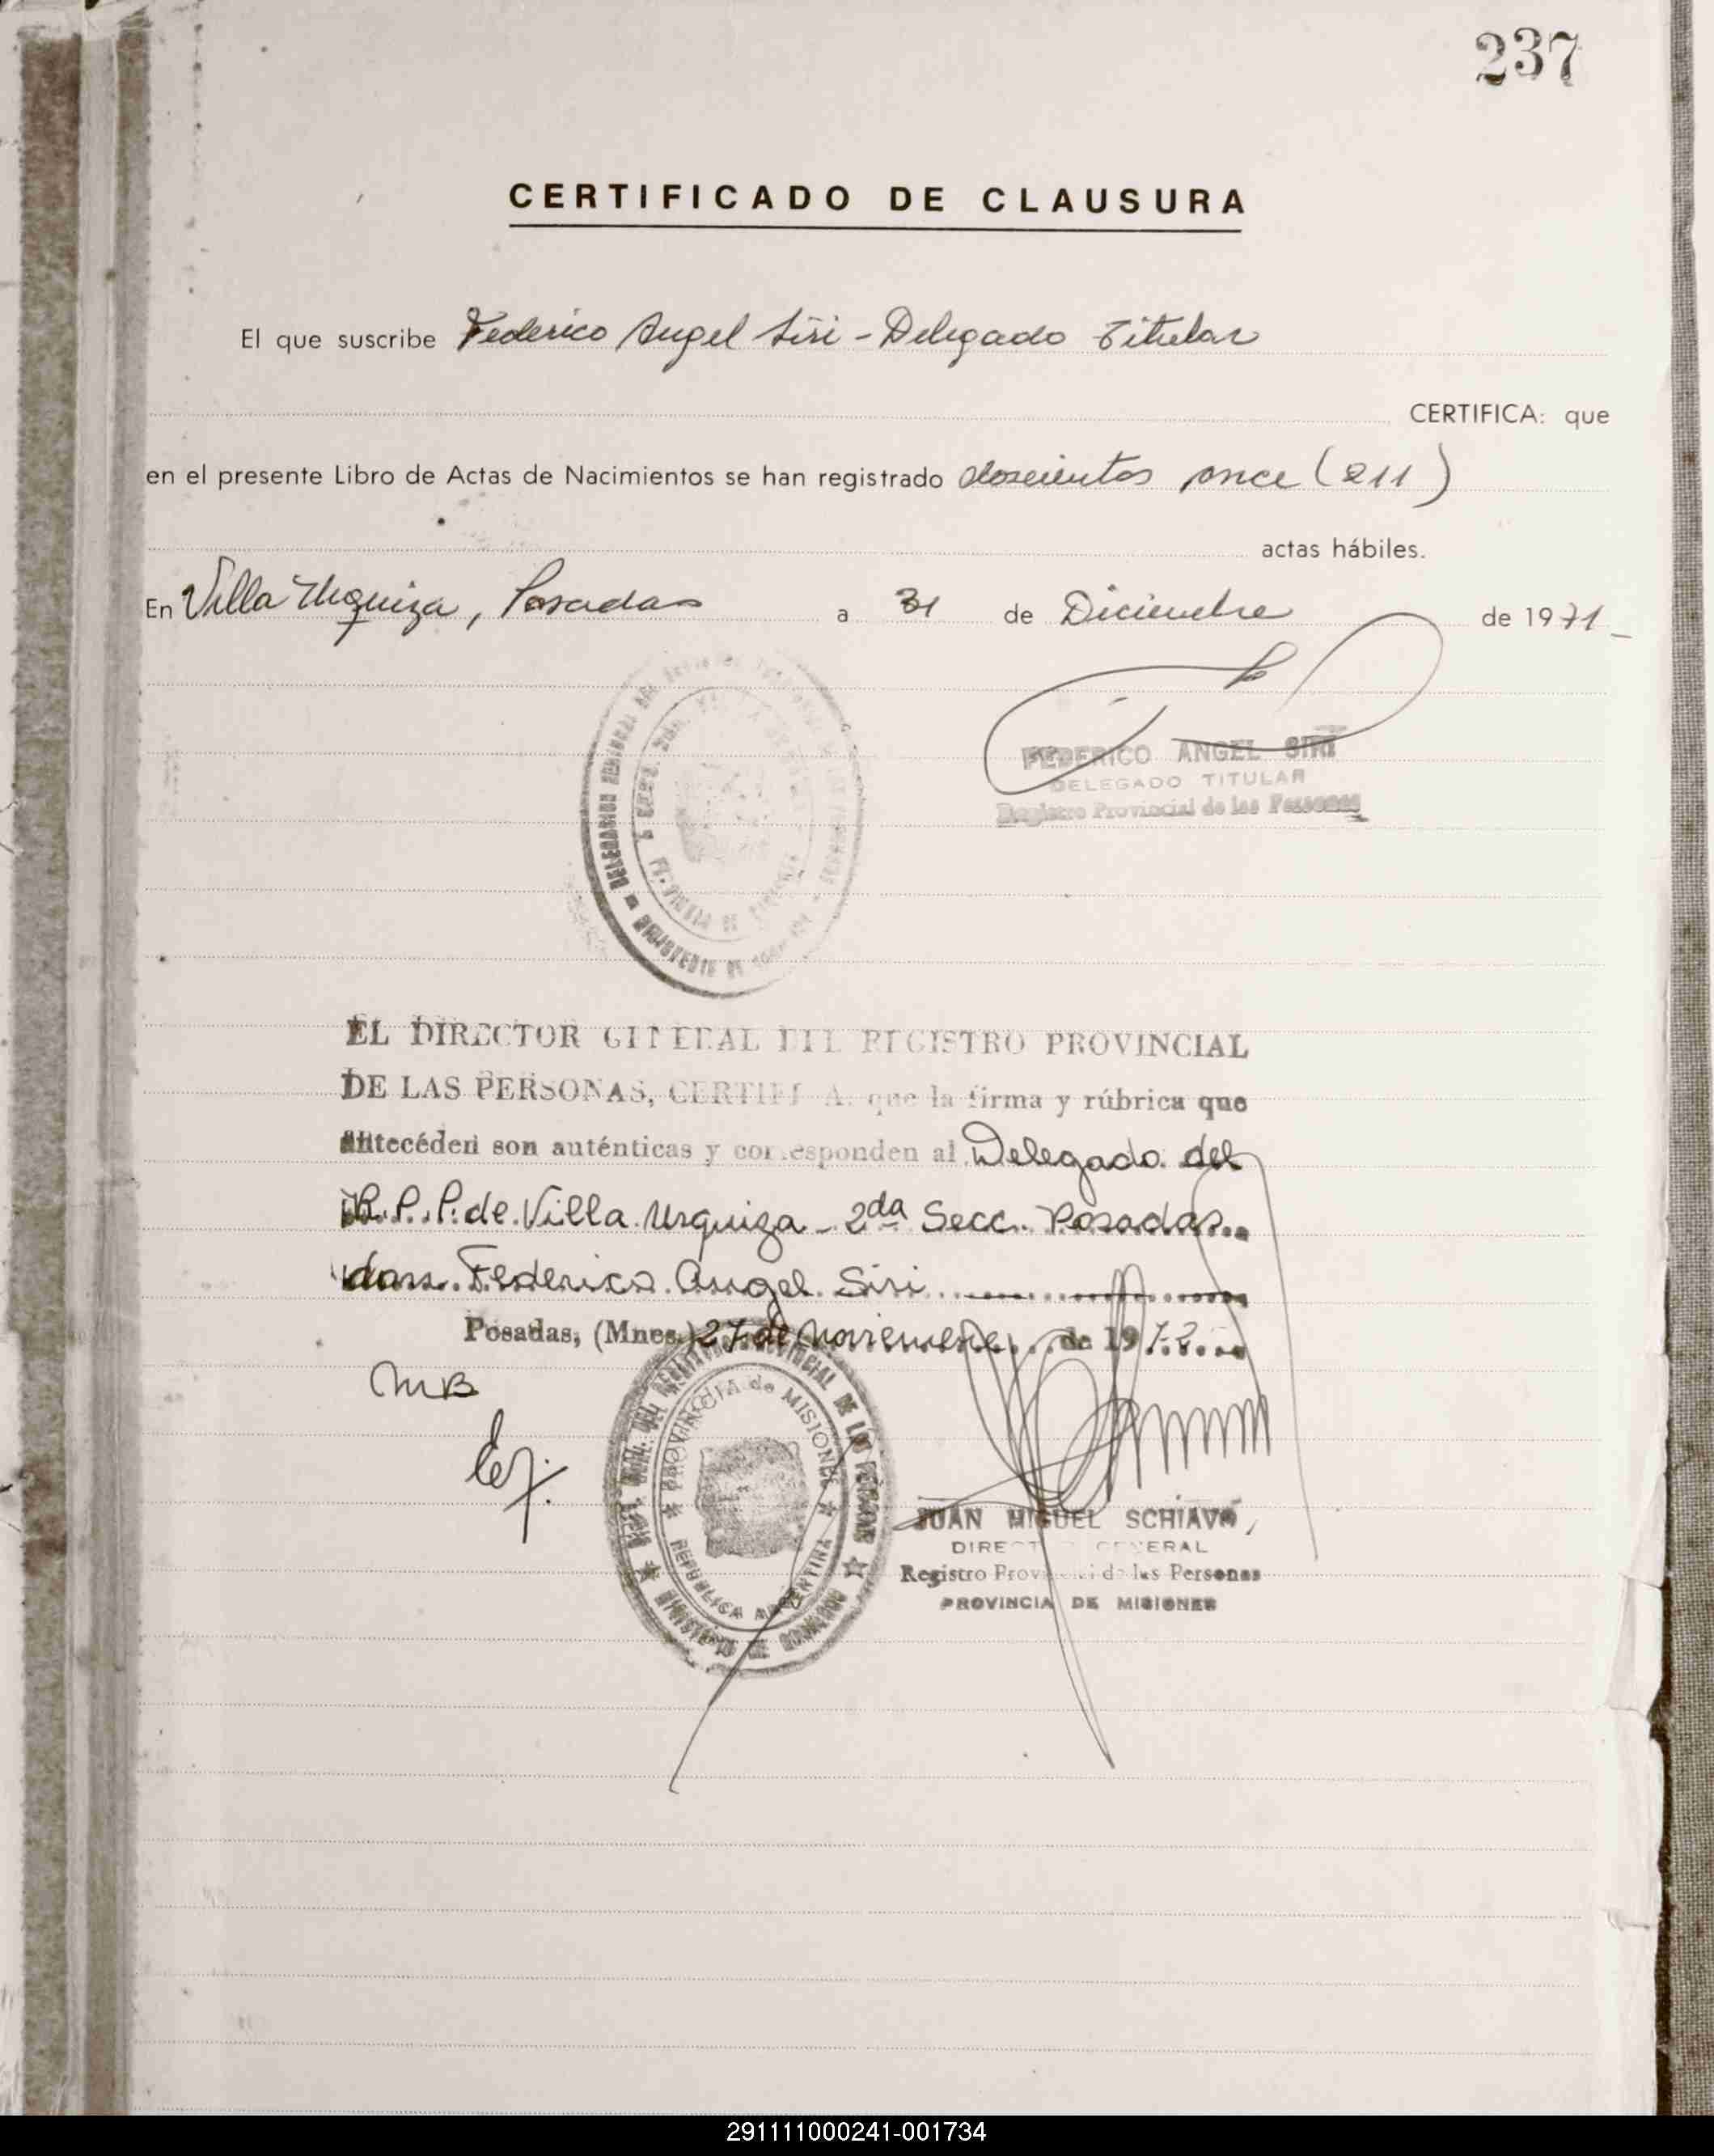 237
CERTIFICADO DE CLAUSURA
El que suscribe Federico Angel Siri - Delegado Titular
CERTIFICA: que
en el presente Libro de Actas de Nacimientos se han registrado doscientos once (211)
actas hábiles.
En Villa Urquiza, Posadas a 31 de Diciembre de 1971
FEDERICO ANGEL SIRI
DELEGADO TITULAR
Registro Provincial de las Personas
EL DIRECTOR GENERAL DEL REGISTRO PROVINCIAL
DE LAS PERSONAS, CERTIFICA: que la firma y rúbrica que
antecéden son auténticas y corresponden al Delegado del
R.P.P. de Villa Urquiza - 2da Secc. Posadas
don Federico Angel Siri
Posadas, (Mnes.) 27 de Noviembre de 1972
MB
PROVINCIA de MISIONES
REPUBLICA ARGENTINA
MINISTERIO DE GOBIERNO
JUAN MIGUEL SCHIAVO
DIRECTOR GENERAL
Registro Provincial de las Personas
PROVINCIA DE MISIONES
291111000241-001734